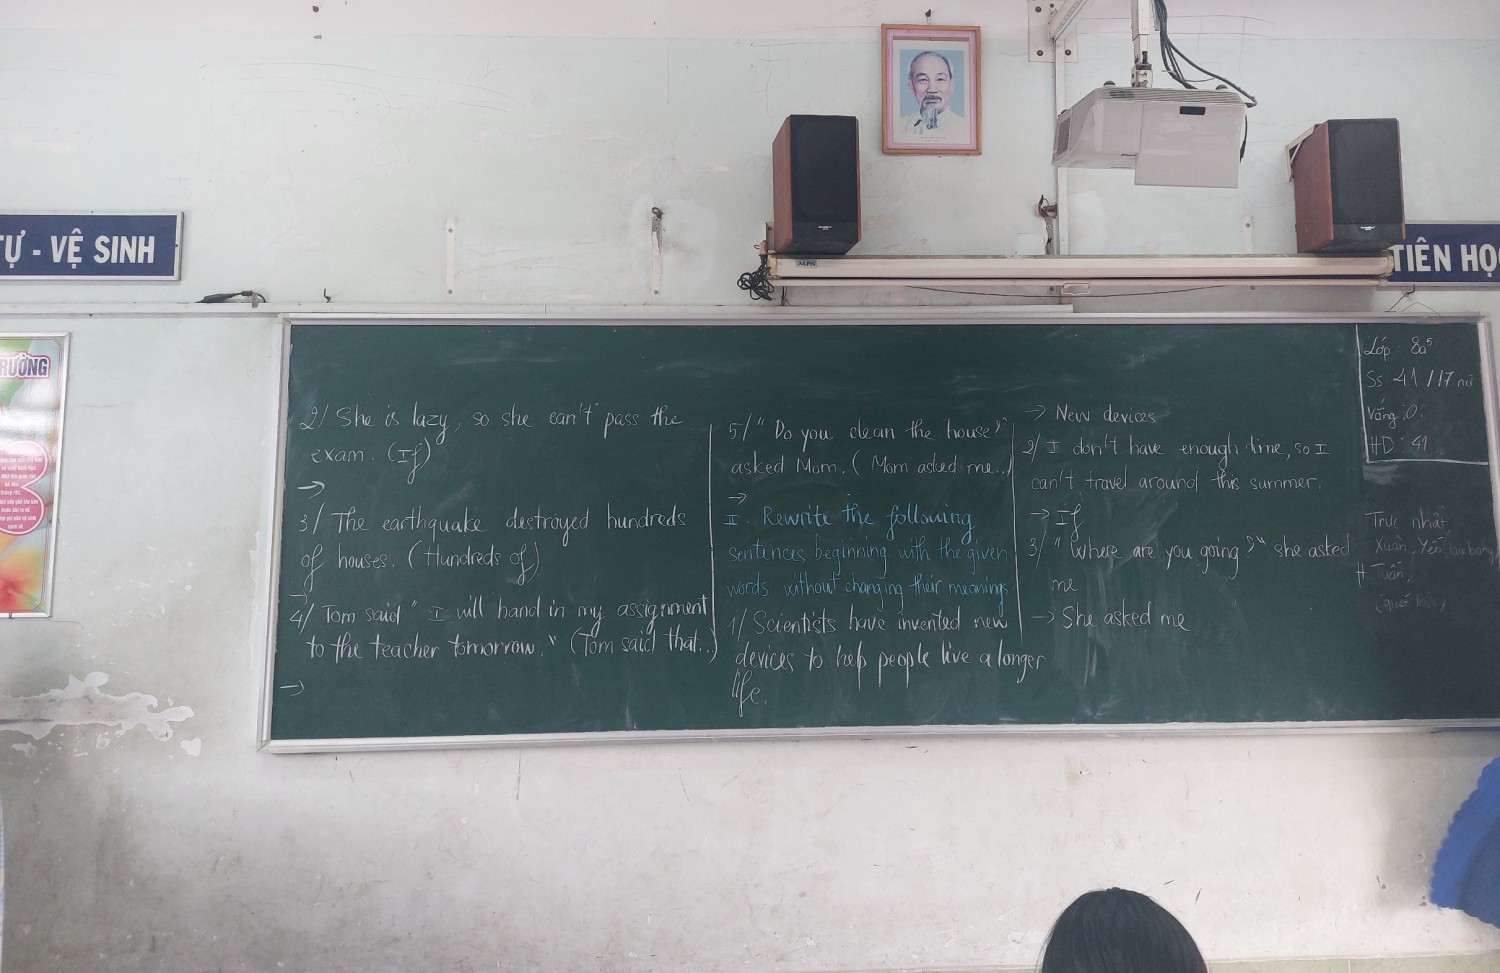 TỰ - VỆ SINH
TIÊN HỌC
RƯỜNG
2/ She is lazy, so she can't pass the
exam. (If)
→
3/ The earthquake destroyed hundreds
of houses. (Hundreds of)
→
4/ Tom said " I will hand in my assignment
to the teacher tomorrow." (Tom said that...)
→
5/ "Do you clean the house?"
asked Mom. (Mom asked me...)
→
II. Rewrite the following
sentences beginning with the given
words without changing their meanings
1/ Scientists have invented new
devices to help people live a longer
life.
→ New devices
2/ I don't have enough time, so I
can't travel around this summer.
→ If
3/ "Where are you going?" she asked
me
→ She asked me
Lớp : 8a5
Ss 41 / 17 nữ
Vắng : 0
HD : 41
Trực nhật
Xuân, Yến (lau bảng)
Tuấn,